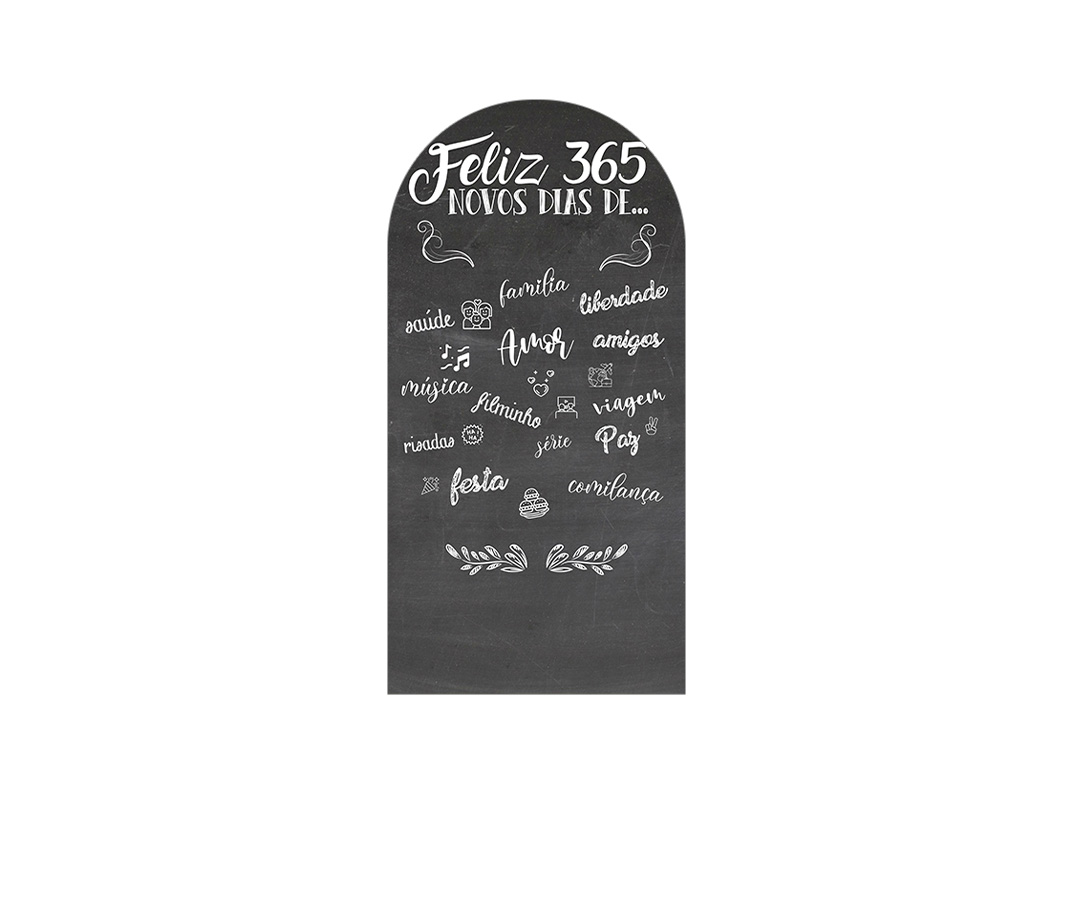 Feliz 365
NOVOS DIAS DE...
familia
liberdade
saúde
Amor
amigos
música
filminho
viagem
risadas
HA!
HA
série
Paz
festa
comilança